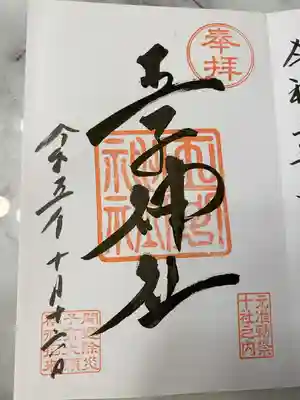 奉拝
王子神社
王子神社
令和五年十月十六日
元准勅祭
十社之内
開運除災